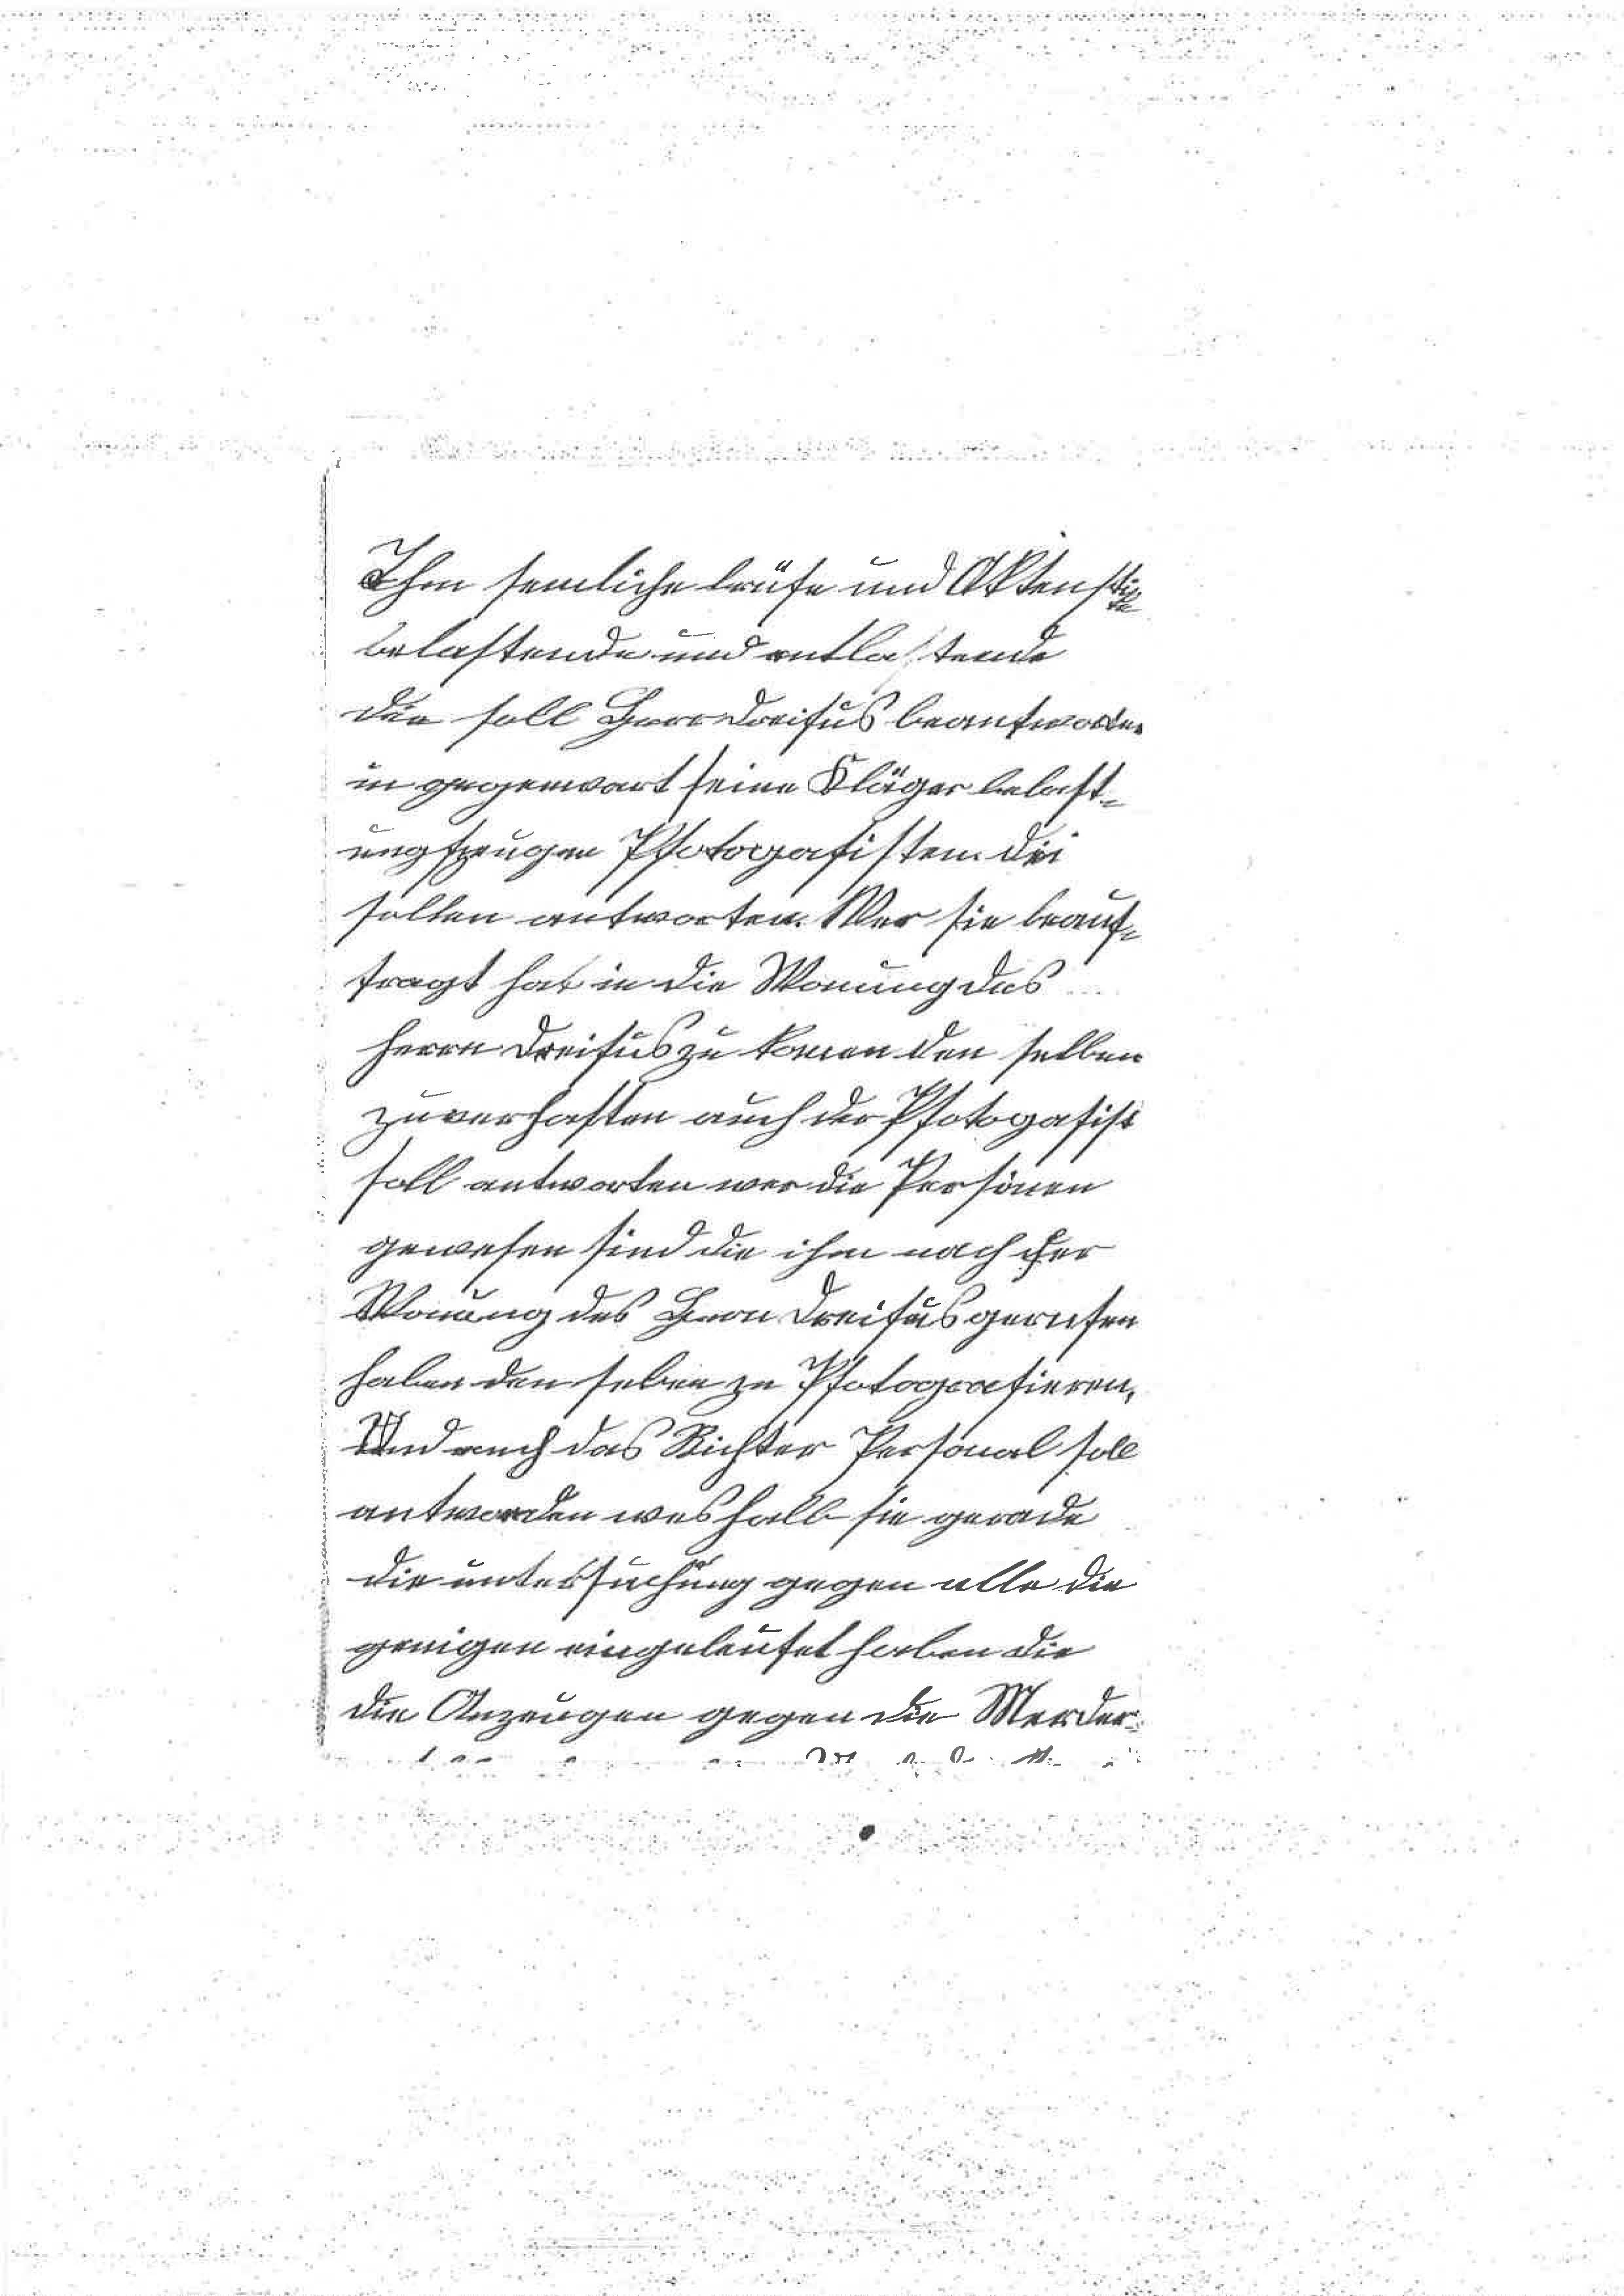 Ihm semliche briefe und Aktenstücke
belastende und entlastende
die soll Herr Dreifus beantworten
in gegenwart seine Kläger belast-
ungszeugen Pfotogafisten. die
sollen antworten. Wer sie beauf-
tragt hat in die Wonung des
Herrn Dreifus zu komen den selben
zu verhaften auch der Pfotogafist
soll antworten wer die Persönen
gewesen sind die ihm nach der
Wonung des Herrn Dreifus gerufen
haben den selben zu Pfotografieren,
Und auch das Richter Personal soll
antworden weshalb sie gerade
die untersuchung gegen alle die
genigen eingeleutet haben die
die Anzeugen gegen die Merder